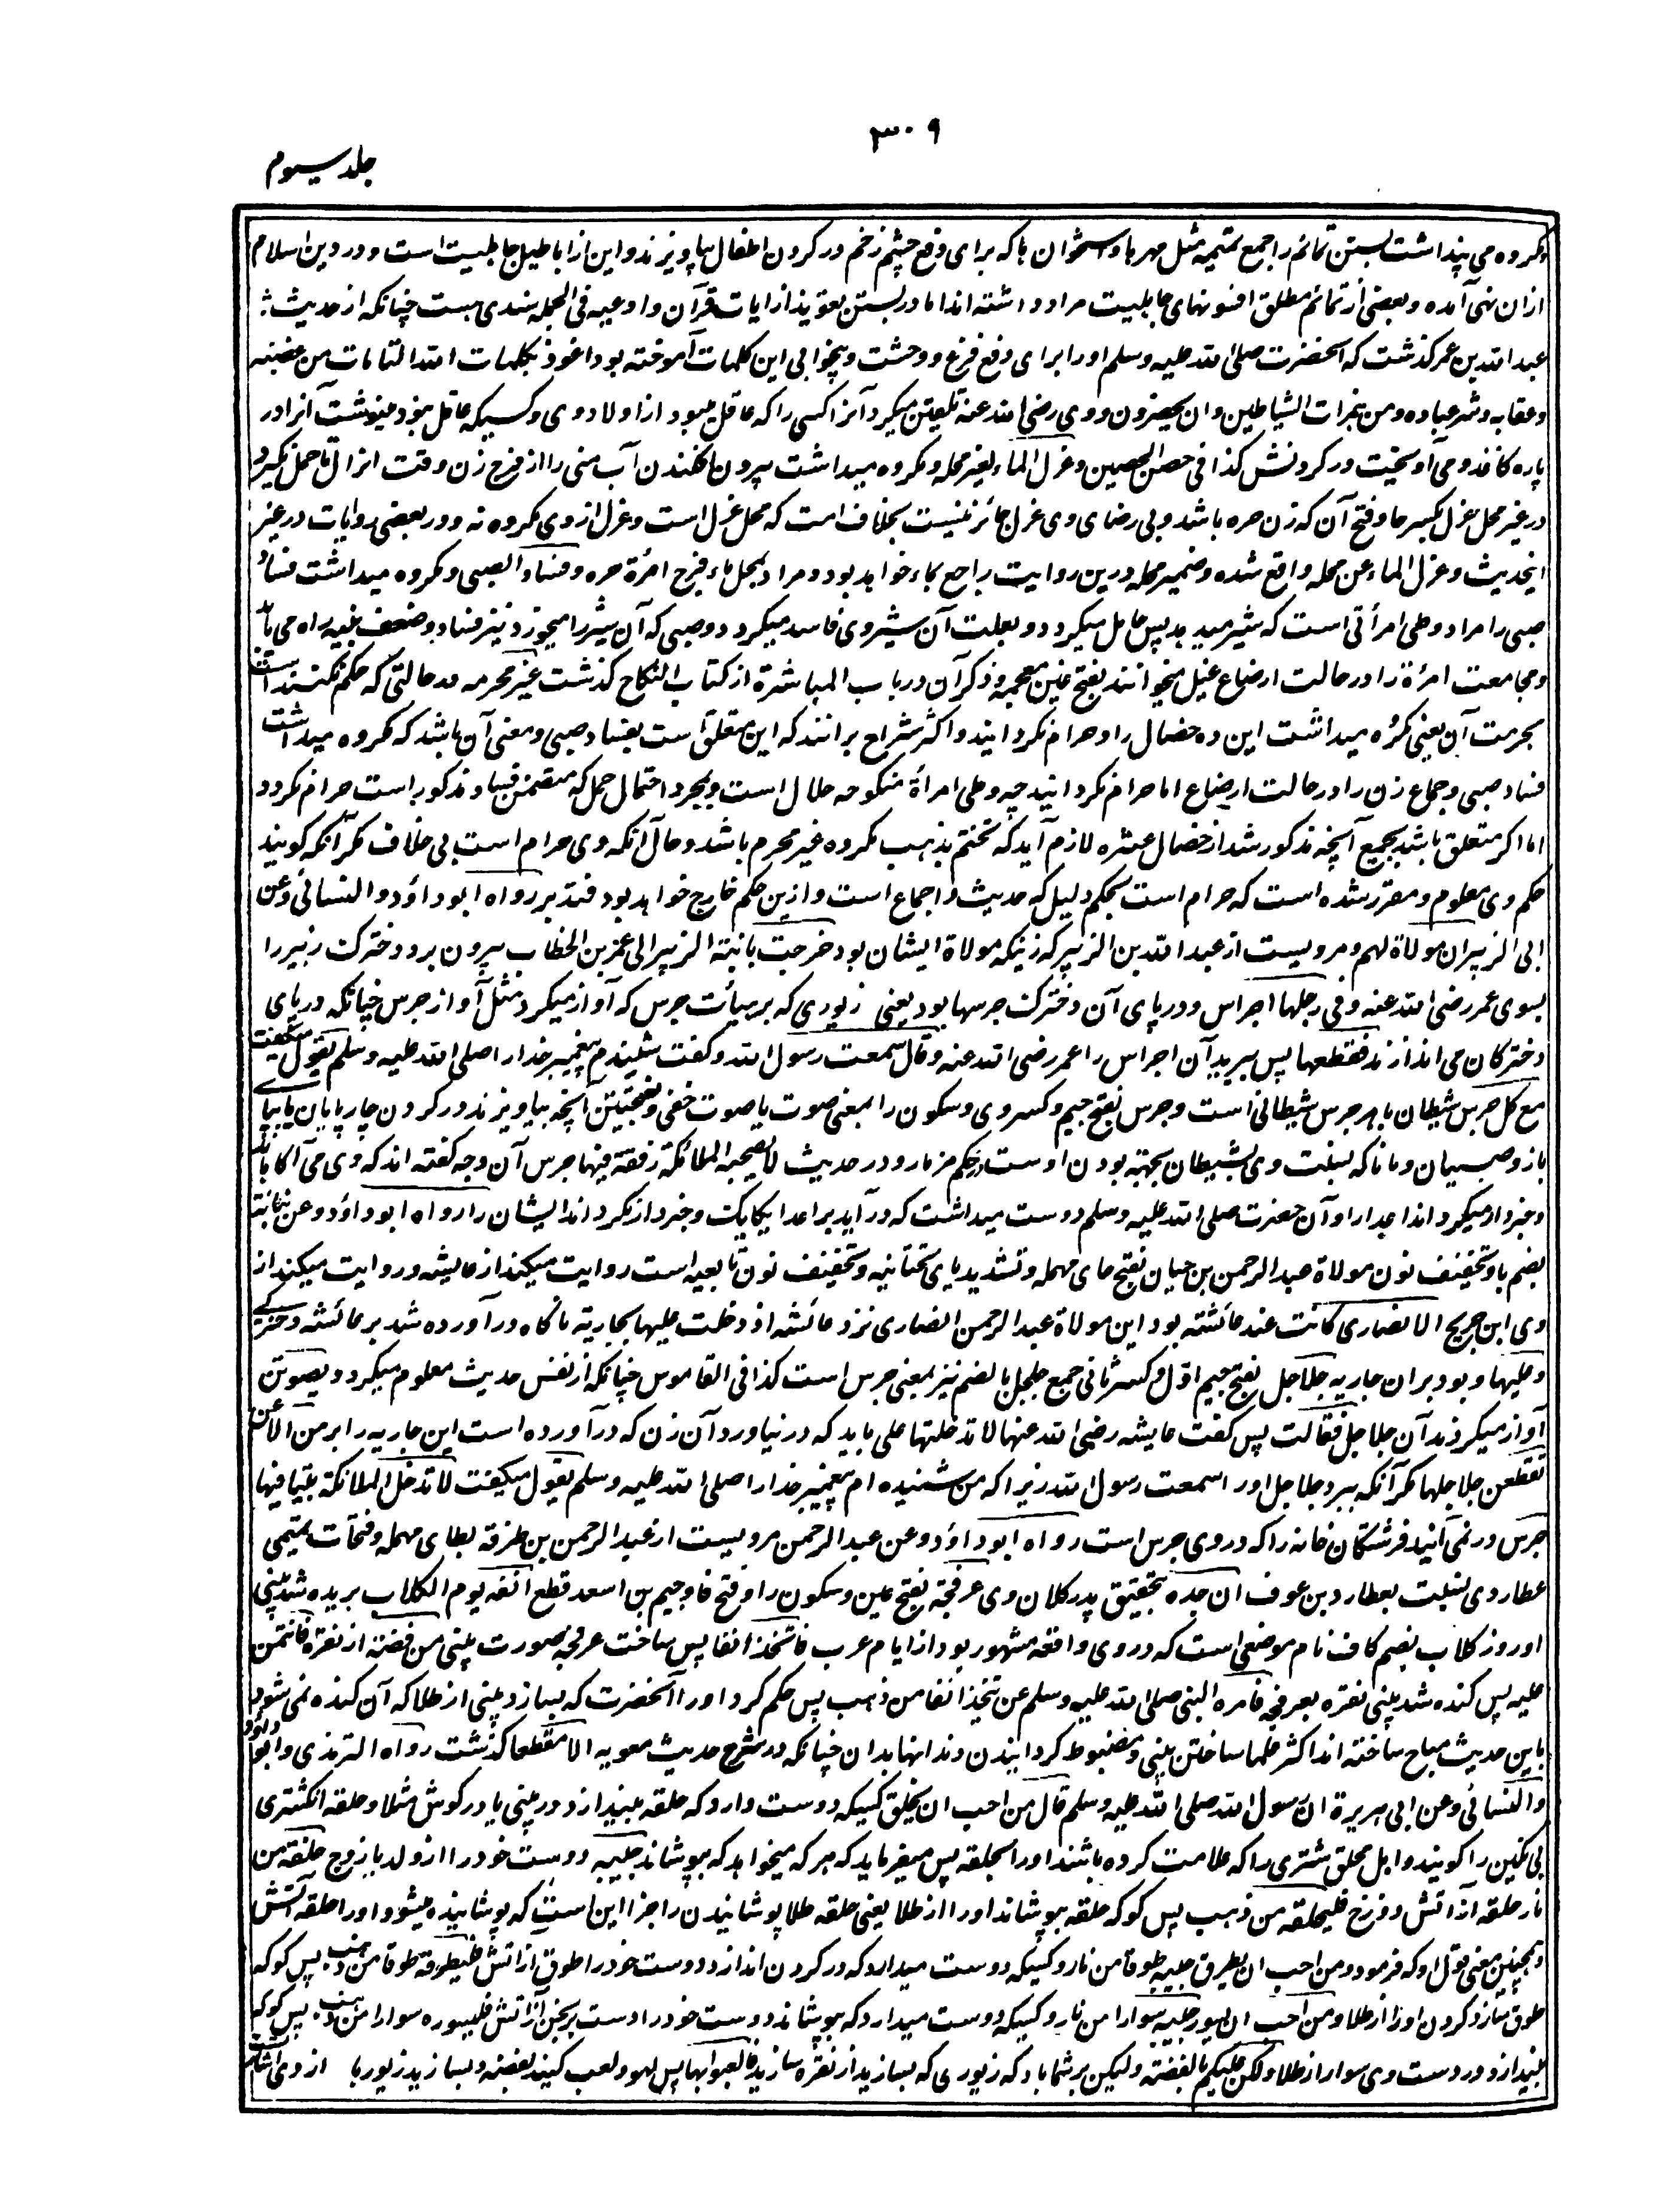 ۳۰۹
جلد سیوم
مکروه می پنداشت بستن تمائم را جمع تمیمه مثل مهرها و استخوان ها که برای دفع چشم زخم در گردن اطفال بیاویزند و این از اباطیل جاهلیت است و در دین اسلام
ازان نهی آمده و بعضی از تمائم مطلق افسونهای جاهلیت مراد داشته اند اما در بستن تعویذ از آیات قرآن و ادعیه فی الجمله سندی هست چنانکه از حدیث
عبد الله بن عمر گذشت که آنحضرت صلی الله علیه وسلم او را برای دفع فزع و وحشت و بیخوابی این کلمات آموخته بود اعوذ بکلمات الله التامات من غضبه
وعقابه وشر عباده ومن همزات الشیاطین وان یحضرون و وی رضی الله عنه تلقین میکرد آنرا کسی را که عاقل میبود از اولاد وی و کسیکه عاقل نبود مینوشت آنرا در
پاره کاغذ و می آویخت در گردنش کذا فی حصن الحصین وعزل الماء لغیر محله و مکروه میداشت بیرون افکندن آب منی را از فرج زن وقت انزال تا حمل نگیرد
در غیر محل عزل بکسر حا و فتح آن که زن حره باشد و بی رضای وی عزل جائز نیست بخلاف امت که محل عزل است و عزل از وی مکروه نه و در بعضی روایات در غیر
اینحدیث وعزل الماء عن محله واقع شده و ضمیر محله درین روایت راجع بماء خواهد بود و مراد بمحل ماء فرج امرأة حره وفساد الصبی و مکروه میداشت فساد
صبی را مراد وطی امرأتی است که شیر میدهد پس حامل میگردد و بعلت آن شیر وی فاسد میگردد و صبی که آن شیر را میخورد نیز فساد و ضعف بنیه راه می یابد
و مجامعت امرأة را در حالت ارضاع غیل میخوانند بفتح غین معجمه و ذکر آن در باب المباشرة از کتاب النکاح گذشت غیر محرمه در حالتی که حکم نکننده است
بحرمت آن یعنی مکروه میداشت این ده خصال را و حرام نگردانید و اکثر شراح برانند که این متعلق است بفساد صبی و معنی آن باشد که مکروه میداشت
فساد صبی و جماع زن را در حالت ارضاع اما حرام نگردانید چه وطی امرأة منکوحه حلال است و بمجرد احتمال حمل که متضمن فساد مذکور است حرام نگردد
اما اگر متعلق باشد بجمیع آنچه مذکور شد از خصال عشره لازم آید که تختم بذهب مکروه غیر محرم باشد و حال آنکه وی حرام است بی خلاف مگر آنکه گویند
حکم وی معلوم و مقرر شده است که حرام است بحکم دلیل که حدیث و اجماع است و ازین حکم خارج خواهد بود فتدبر رواه ابو داؤد والنسائی وعن
ابی الزبیر ان مولاة لهم مرویست از عبد الله بن الزبیر که زنیکه مولاة ایشان بود خرجت بابنة الزبیر الی عمر بن الخطاب بیرون برد دخترک زبیر را
بسوی عمر رضی الله عنه وفی رجلها اجراس و در پای آن دخترک جرسها بود یعنی زیوری که بر هیأت جرس که آواز میکرد مثل آواز جرس چنانکه در پای
دخترکان می اندازند فقطعها پس ببرید آن اجراس را عمر رضی الله عنه وقال سمعت رسول الله و گفت شنیدم پیغمبر خدا را صلی الله علیه وسلم یقول میگفت
مع کل جرس شیطان با هر جرس شیطانی است و جرس بفتح جیم و کسر وی و سکون را بمعنی صوت یا صوت خفی و بفتحتین آنچه بیاویزند در گردن چارپایان یا بپای
باز و صبیان و مانا که نسبت وی بشیطان بجهت بودن اوست در حکم مزمار و در حدیث لا تصحبه الملائکة رفقة فیها جرس آن وجه گفته اند که وی می آگاهاند
و خبردار میگرداند اعدا را و آن حضرت صلی الله علیه وسلم دوست میداشت که در آید بر اعدا یکایک و خبردار نگرداند ایشان را رواه ابو داؤد وعن بنانة
بضم با و تخفیف نون مولاة عبد الرحمن بن حیان بفتح حای مهمله و تشدید یای تحتانیه و تخفیف نون تابعیه است روایت میکند از عایشه و روایت میکند از
وی ابن جریج الانصاری کانت عند عائشة بود این مولاة عبد الرحمن انصاری نزد عائشه اذ دخلت علیها بجاریة ناگاه در آورده شد بر عائشه دخترکی
وعلیها و بود بران جاریه جلاجل بفتح جیم اول و کسر ثانی جمع جلجل بالضم نیز بمعنی جرس است کذا فی القاموس چنانکه از نفس حدیث معلوم میگردد یصوتن
آواز میکردند آن جلاجل فقالت پس گفت عایشه رضی الله عنها لا تدخلنها علی باید که در نیاورد آن زن که در آورده است این جاریه را بر من الا ان
تقطعن جلاجلها مگر آنکه ببرد جلاجل او را سمعت رسول الله زیرا که من شنیده ام پیغمبر خدا را صلی الله علیه وسلم یقول میگفت لا تدخل الملائکة بیتا فیها
جرس در نمی آیند فرشتگان خانه را که در وی جرس است رواه ابو داؤد وعن عبد الرحمن مرویست از عبد الرحمن بن طرفة بطای مهمله و فتحات تمیمی
عطاردی نسبت بعطارد بن عوف ان جده بتحقیق پدر کلان وی عرفجة بفتح عین و سکون را و فتح فا و جیم بن اسعد قطع انفه یوم الکلاب بریده شد بینی
او روز کلاب بضم کاف نام موضعی است که در وی واقعه مشهور بود از ایام عرب فاتخذ انفا پس ساخت عرفجه بصورت بینی من فضة از نقره فانتن
علیه پس گنده شد بینی نقره بعرفجه فامره النبی صلی الله علیه وسلم عن یتخذ انفا من ذهب پس حکم کرد او را آنحضرت که بسازد بینی از طلا که آن گنده نمی شود
باین حدیث مباح ساخته اند اکثر علما ساختن بینی و مضبوط گردانیدن دندانها بدان چنانکه در شرح حدیث معویه الا مقطعا گذشت رواه الترمذی وابو داؤد
والنسائی وعن ابی هریرة ان رسول الله صلی الله علیه وسلم قال من احب ان یحلق کسیکه دوست دارد که حلقه بیندازد در بینی یا در گوش مثلا و حلقه انگشتری
بی نگین را گویند و ابل محلق شتری را که علامت کرده باشند او را بحلقه پس میفرماید که هر که میخواهد که بپوشاند حبیبه دوست خود را از ولد یا زوج حلقة من
نار حلقه از آتش دوزخ فلیحلقه من ذهب پس گو که حلقه بپوشاند او را از طلا یعنی حلقه طلا پوشانیدن را جزا این است که پوشانیده میشود او را حلقه آتش
و همچنین معنی قول او که فرمود ومن احب ان یطوق حبیبه طوقا من نار و کسیکه دوست میدارد که در گردن اندازد دوست خود را طوق از آتش فلیطوقه طوقا من ذهب پس گو که
طوق سازد گردن او را از طلا ومن احب ان یسور حبیبه سوارا من نار و کسیکه دوست میدارد که بپوشاند دوست خود را دست برنجن از آتش فلیسوره سوارا من ذهب پس گو که
بیندازد در دست وی سوار از طلا ولکن علیکم بالفضة و لیکن بر شما باد که زیوری که بسازید از نقره سازید فالعبوا بها پس لهو و لعب کنید بفضه و بسازید زیورها از وی